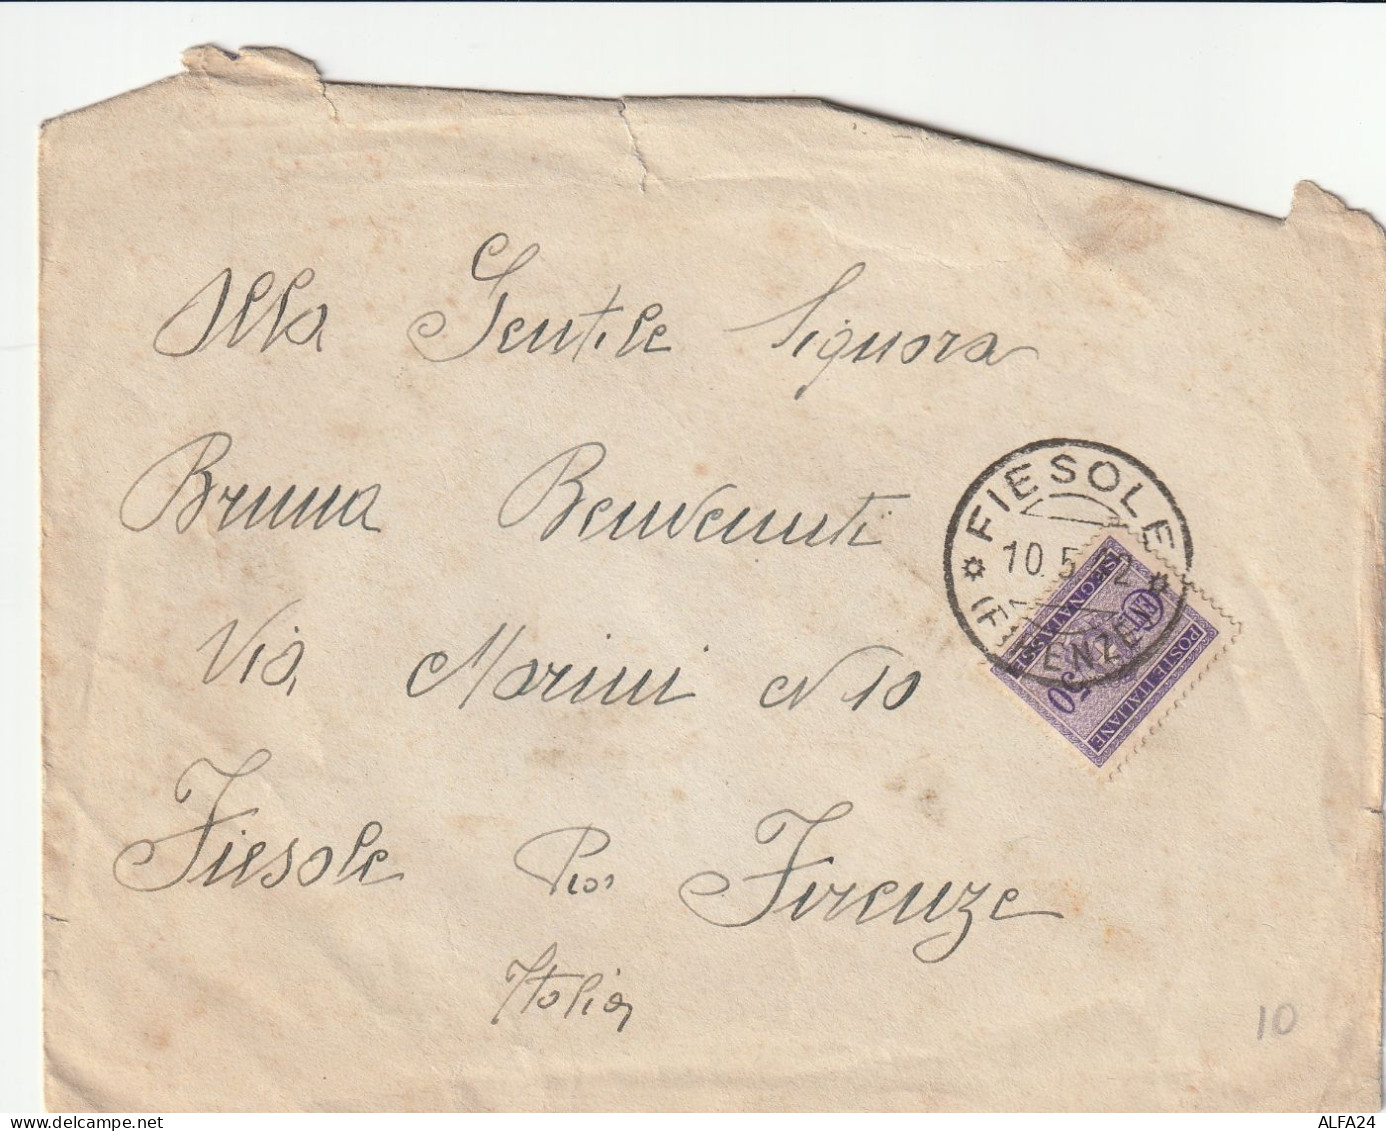 Alla Gentile Signora
Bruna Benvenuti
Via Marini N 10
Fiesole Per Firenze
Italia
FIESOLE
10. 5.
(FIRENZE)
SEGNATASSE
CENT
50
POSTE ITALIANE
10
ALFA24